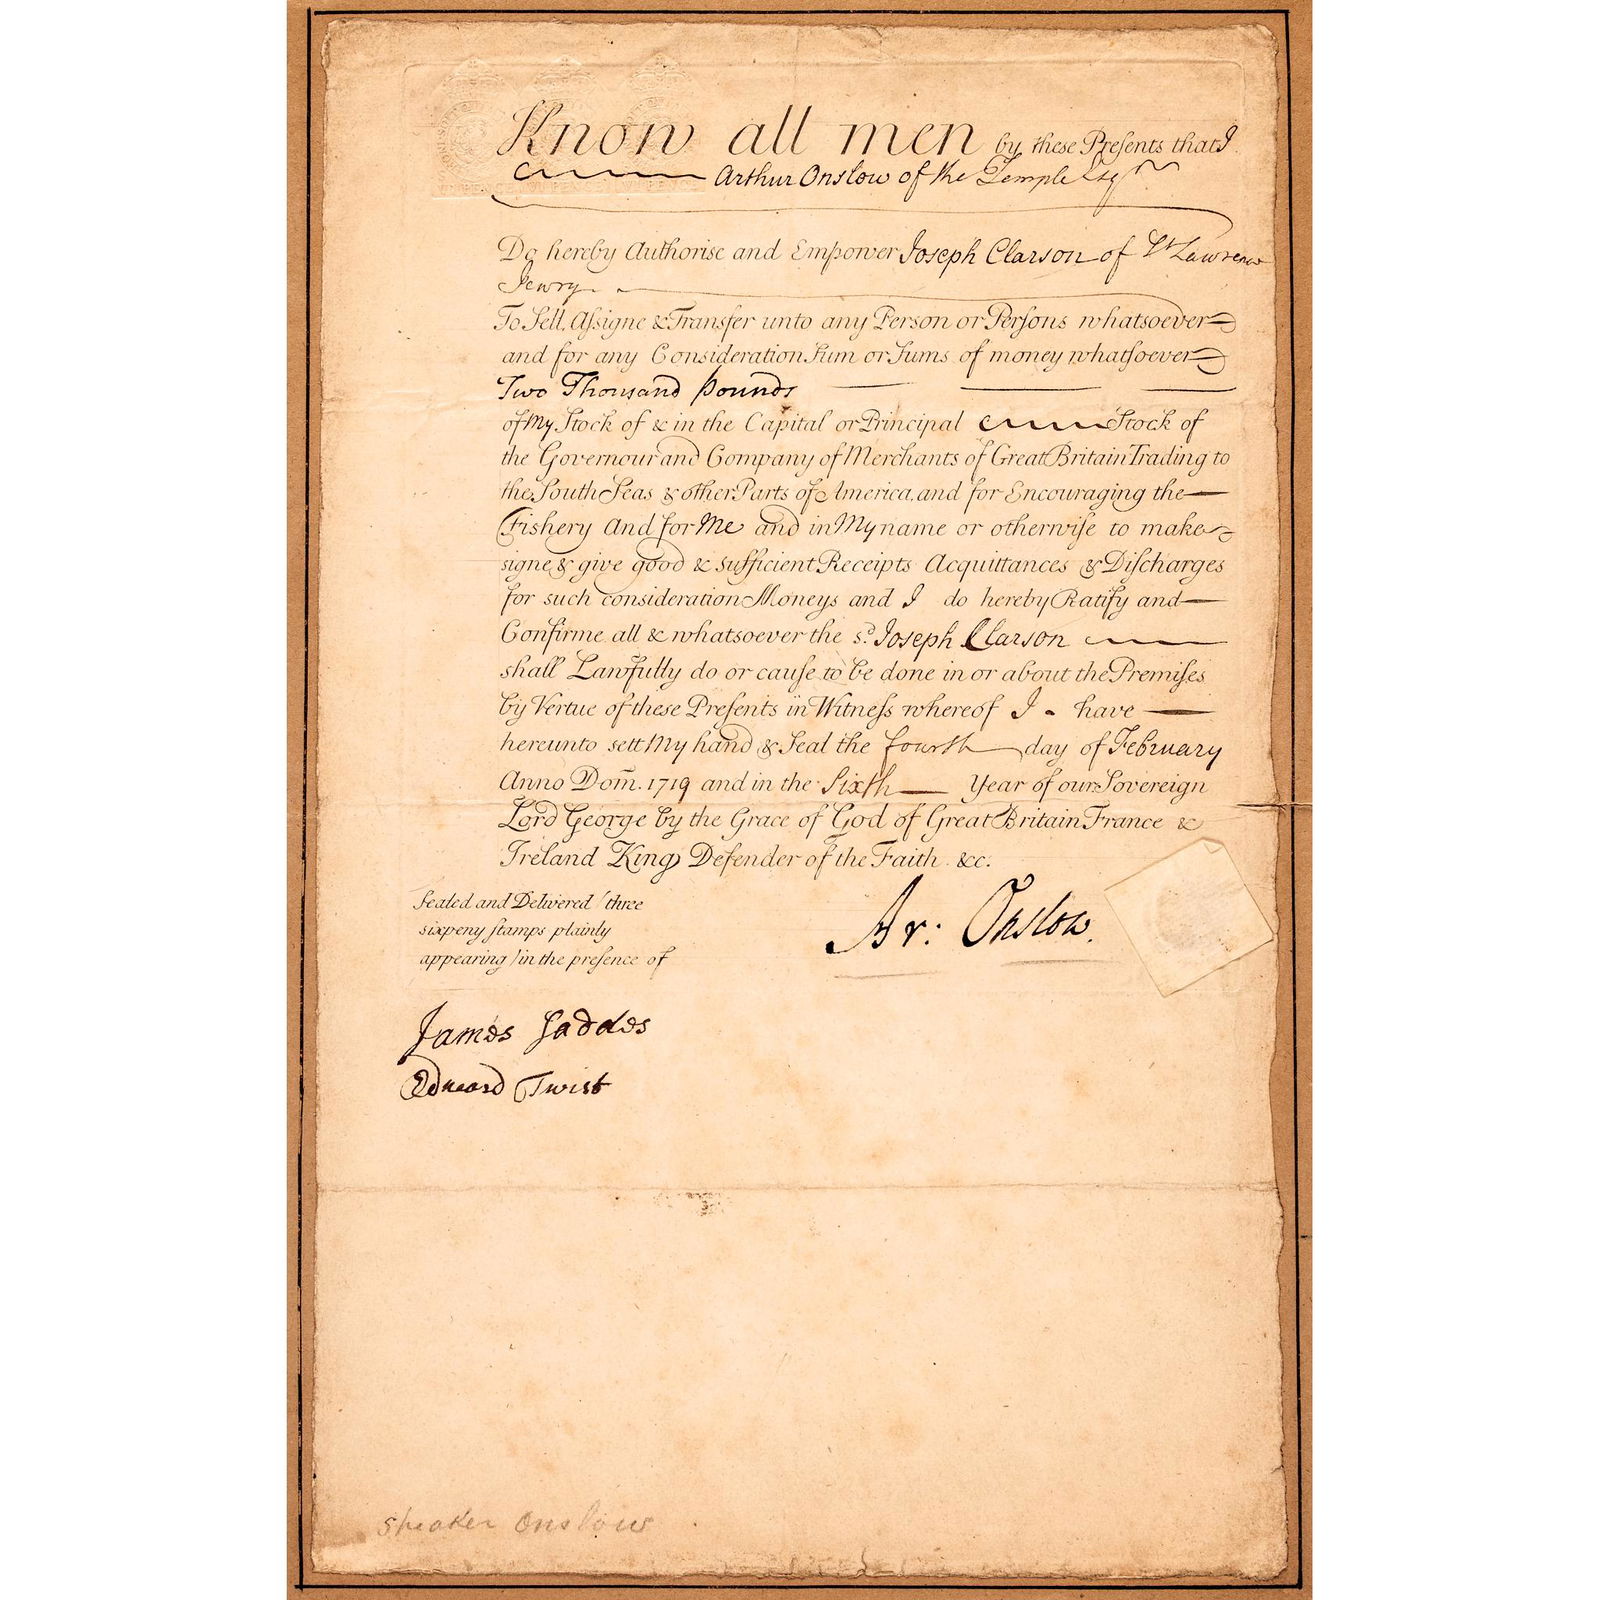 Know all men by these Preſents that I
Arthur Onslow of the Temple Esqr
Do hereby Authorise and Empower Joseph Clarson of St Lawrence
Jewry
To Sell, Aſsigne & Transfer unto any Person or Perſons whatsoever
and for any Consideration Sum or Sums of money whatſoever
Two Thousand pounds
of My Stock of & in the Capital or Principal Stock of
the Governour and Company of Merchants of Great Britain Trading to
the South Seas & other Parts of America, and for Encouraging the
Fishery And for Me and in My name or otherwiſe to make
signe & give good & sufficient Receipts Acquittances & Diſcharges
for such consideration Moneys and I do hereby Ratify and
Confirme all & whatsoever the sd. Joseph Clarson
shall Lawfully do or cauſe to be done in or about the Premiſes
by Vertue of these Preſents in Witneſs whereof I have
hereunto sett My hand & Seal the fourth day of February
Anno Dom. 1719 and in the Sixth Year of our Sovereign
Lord George by the Grace of God of Great Britain France &
Ireland King Defender of the Faith &c.
Sealed and Delivered (three
sixpeny ſtamps plainly
appearing) in the preſence of
Ar: Onslow.
James
Edward Twist
Speaker Onslow